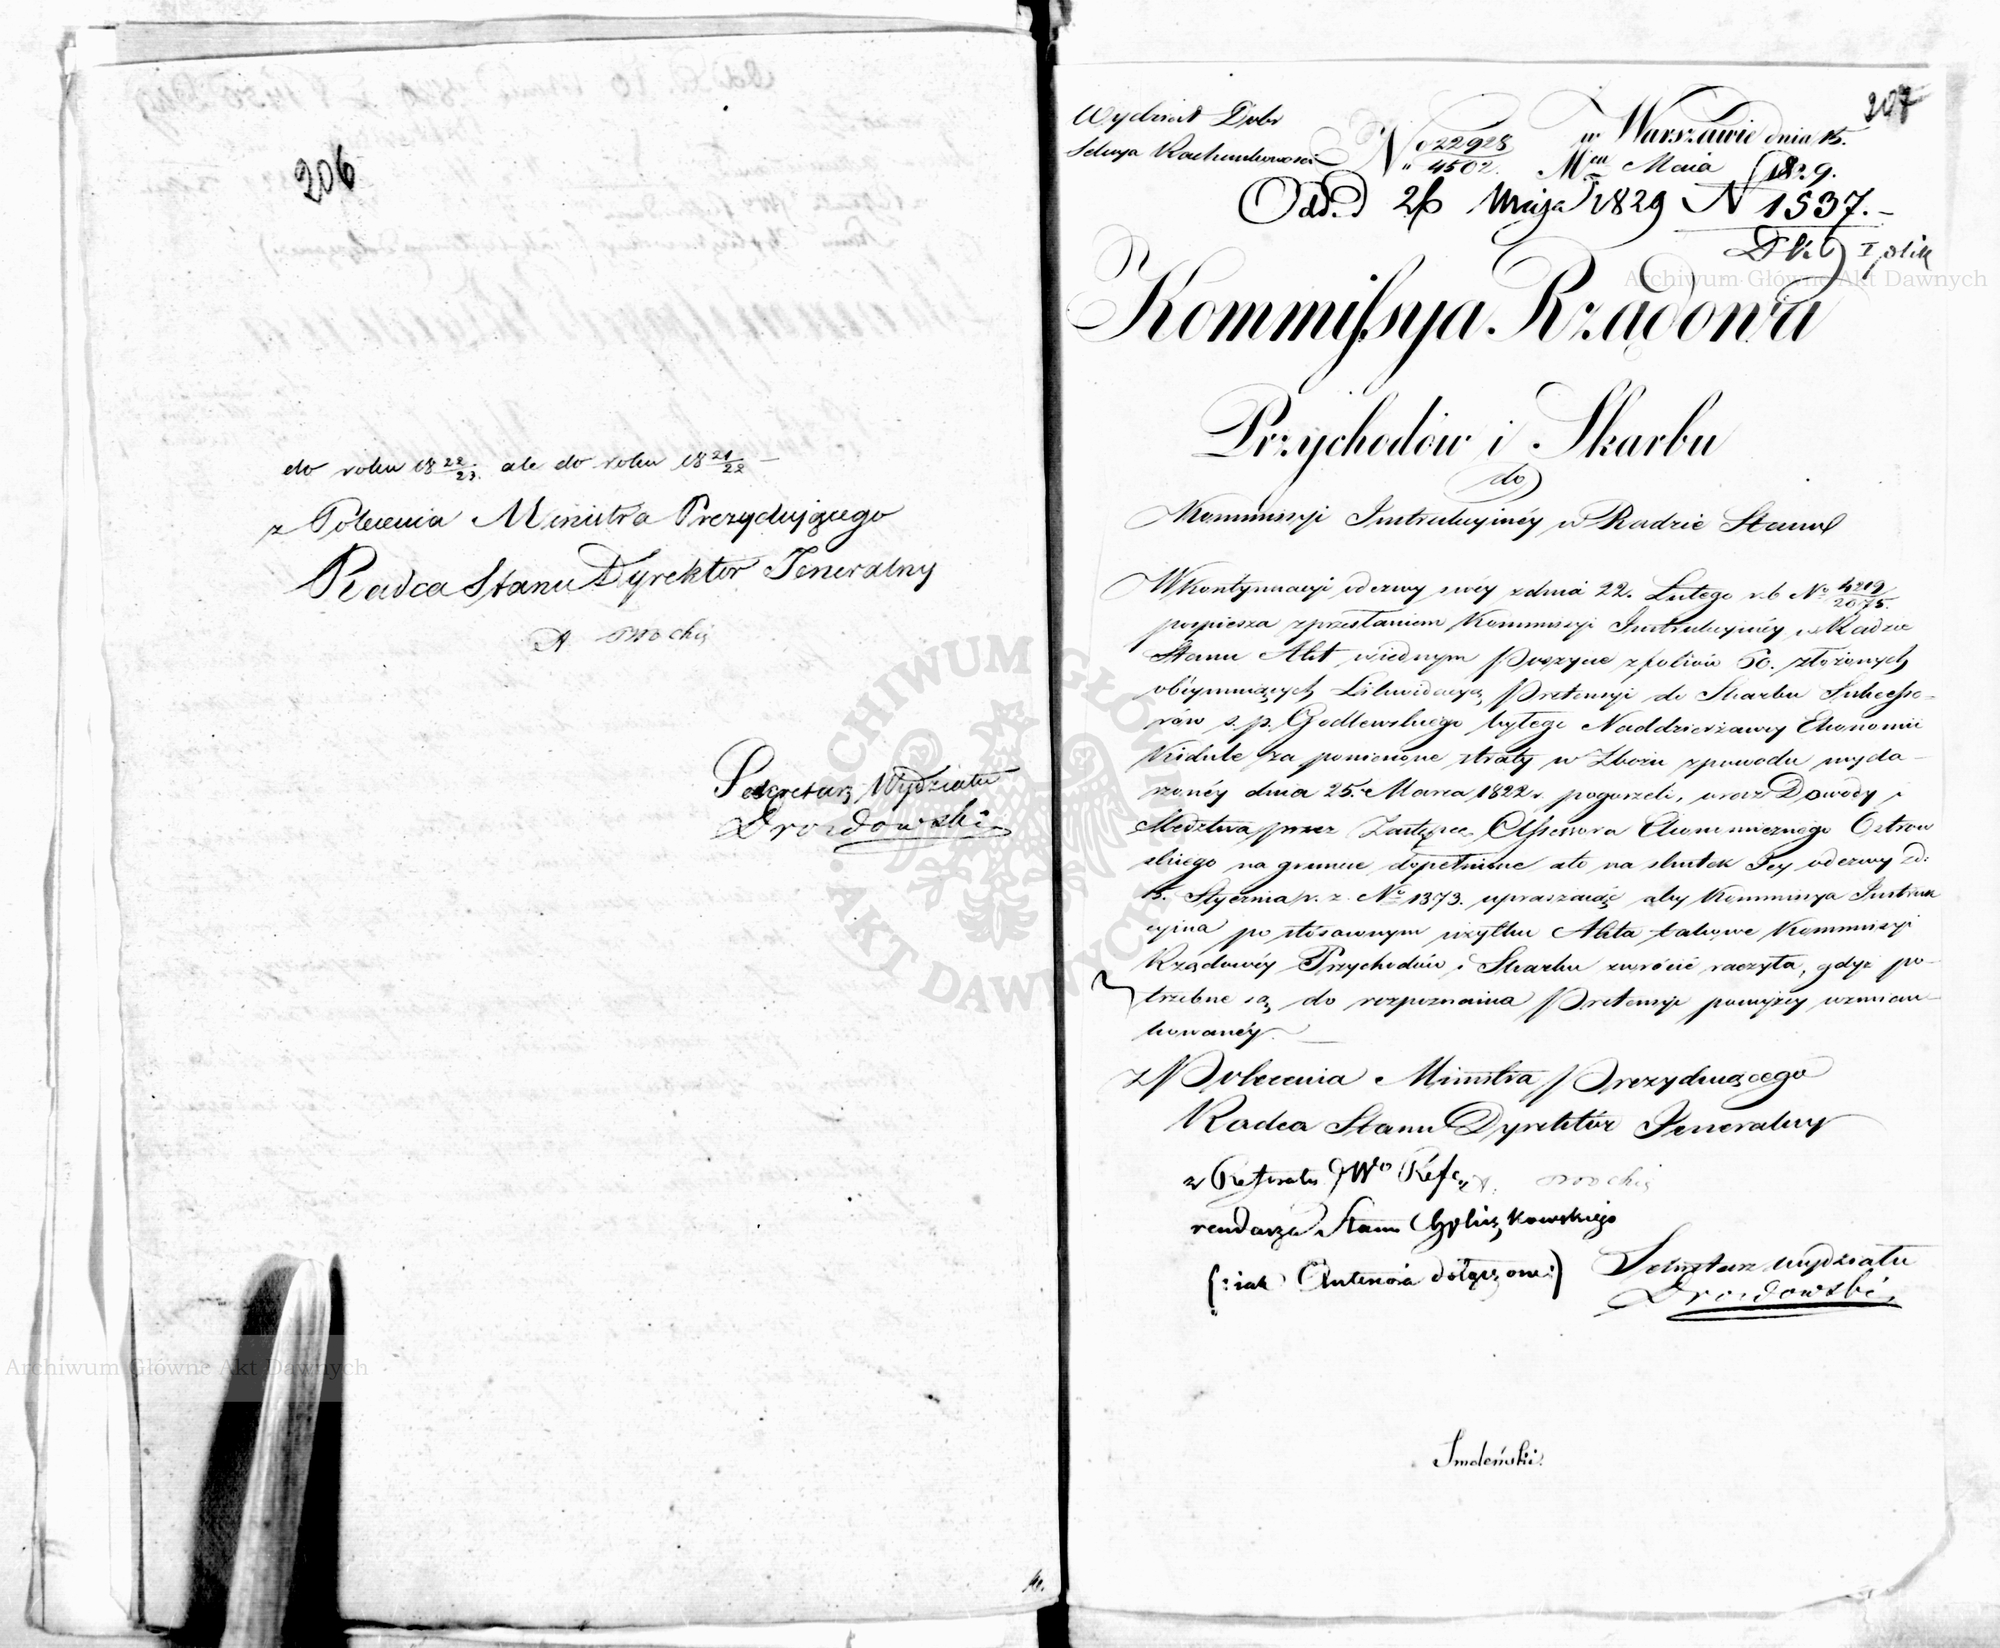 206
do roku 18 22/23. ale do roku 18 21/22 —
z Polecenia Ministra Prezydującego
Radca Stanu Dyrektor Jeneralny
Sekretarz Wydziału
Drozdowski
207
Wydział Dóbr
Sekcya Rachunkowości
No 22928/4502.
w Warszawie dnia 15.
Mca Maia 1829.
Odd. d 26 Maja 1829 N 1537.—
Kommissya Rządowa
Przychodów i Skarbu
do
Kommissyi Instrukcyinéy w Radzie Stanu
W kontynuacyi odezwy swéy z dnia 22. Lutego r. b No 4219/2075.
pospiesza z przesłaniem Kommissyi Instrukcyinéy w Radzie
Stanu Akt w iednym Poszycie z foliów 60. złożonych
obeymuiących Likwidacyą Pretensyi do Skarbu Sukcesso-
rów ś. p. Godlewskiego byłego Naddzierżawcy Ekonomii
Kidule za poniesione straty w Zbożu z powodu wyda-
rzonéy dnia 25. Marca 1822 r. pogorzeli, oraz Dowody i
Śledztwa przez Zastępcę Assessora Ekonomicznego Ostrow
skiego na gruncie dopełnione a to na skutek Jey odezwy z d.
15. Stycznia r. z. No 1373. upraszaiąc aby Kommissya Instruk
cyina po stósownym użytku Akta takowe Kommissyi
Rządowéy Przychodów i Skarbu zwrócić raczyła, gdyż po-
trzebne są do rozpoznania Pretensyi powyżéy wzmian-
kowanéy.
z Polecenia Ministra Prezyduiącego
Radca Stanu Dyrektór Jeneralny
z Referatu JWo Refe
rendarza Stanu
(: iak Antenoia dołączone :)
Sekretarz wydziału
Drozdowski
Smoleński.
ARCHIWUM GŁÓWNE AKT DAWNYCH
Archiwum Główne Akt Dawnych
Archiwum Główne Akt Dawnych